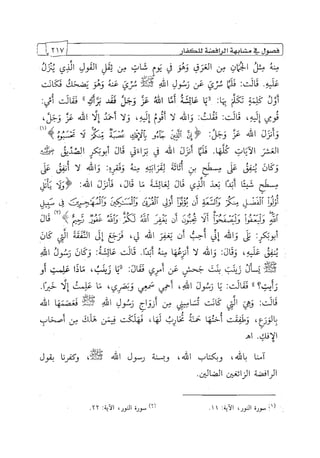 فصول في مشابهة الرافضة للكفار ٢١٧
منه مثل الجمان من العرق وهو في يوم شات من ثقل القول الذي ينزل
عليه. قالت: فلما سري عن رسول الله ﷺ سري عنه وهو يضحك فكانت
أول كلمة تكلم بها: "يا عائشة أما الله عز وجل فقد برأك" فقالت أمي:
قومي إليه، قالت: فقلت: والله لا أقوم إليه، ولا أحمد إلا الله عز وجل
وأنزل الله عز وجل: ﴿إن الذين جاءو بالإفك عصبة منكم لا تحسبوه﴾(١)
العشر الآيات كلها. فلما أنزل الله في براءتي قال أبو بكر الصديق
وكان ينفق على مسطح بن أثاثة لقرابته منه وفقره: والله لا أنفق على
مسطح شيئا أبدا بعد الذي قال لعائشة ما قال، فأنزل الله: ﴿ولا يأتل
أولوا الفضل منكم والسعة أن يؤتوا أولي القربى والمساكين والمهاجرين في سبيل
الله وليعفوا وليصفحوا ألا تحبون أن يغفر الله لكم والله غفور رحيم﴾(٢) قال
أبو بكر: بلى والله إني أحب أن يغفر الله لي، فرجع إلى النفقة التي كان
ينفق عليه، وقال: والله لا أنزعها منه أبدا. قالت عائشة: وكان رسول الله
ﷺ يسأل زينب بنت جحش عن أمري فقال: "يا زينب، ماذا علمت أو
رأيت؟" فقالت: يا رسول الله، أحمي سمعي وبصري، ما علمت إلا خيرا.
قالت: وهي التي كانت تساميني من أزواج رسول الله ﷺ فعصمها الله
بالورع، وطفقت أختها حمنة تحارب لها، فهلكت فيمن هلك من أصحاب
الإفك. اهـ
آمنا بالله، وبكتاب الله، وبسنة رسول الله ﷺ، وكفرنا بقول
الرافضة الزائغين الضالين.
(١) سورة النور، الآية: ١١. (٢) سورة النور، الآية: ٢٢.